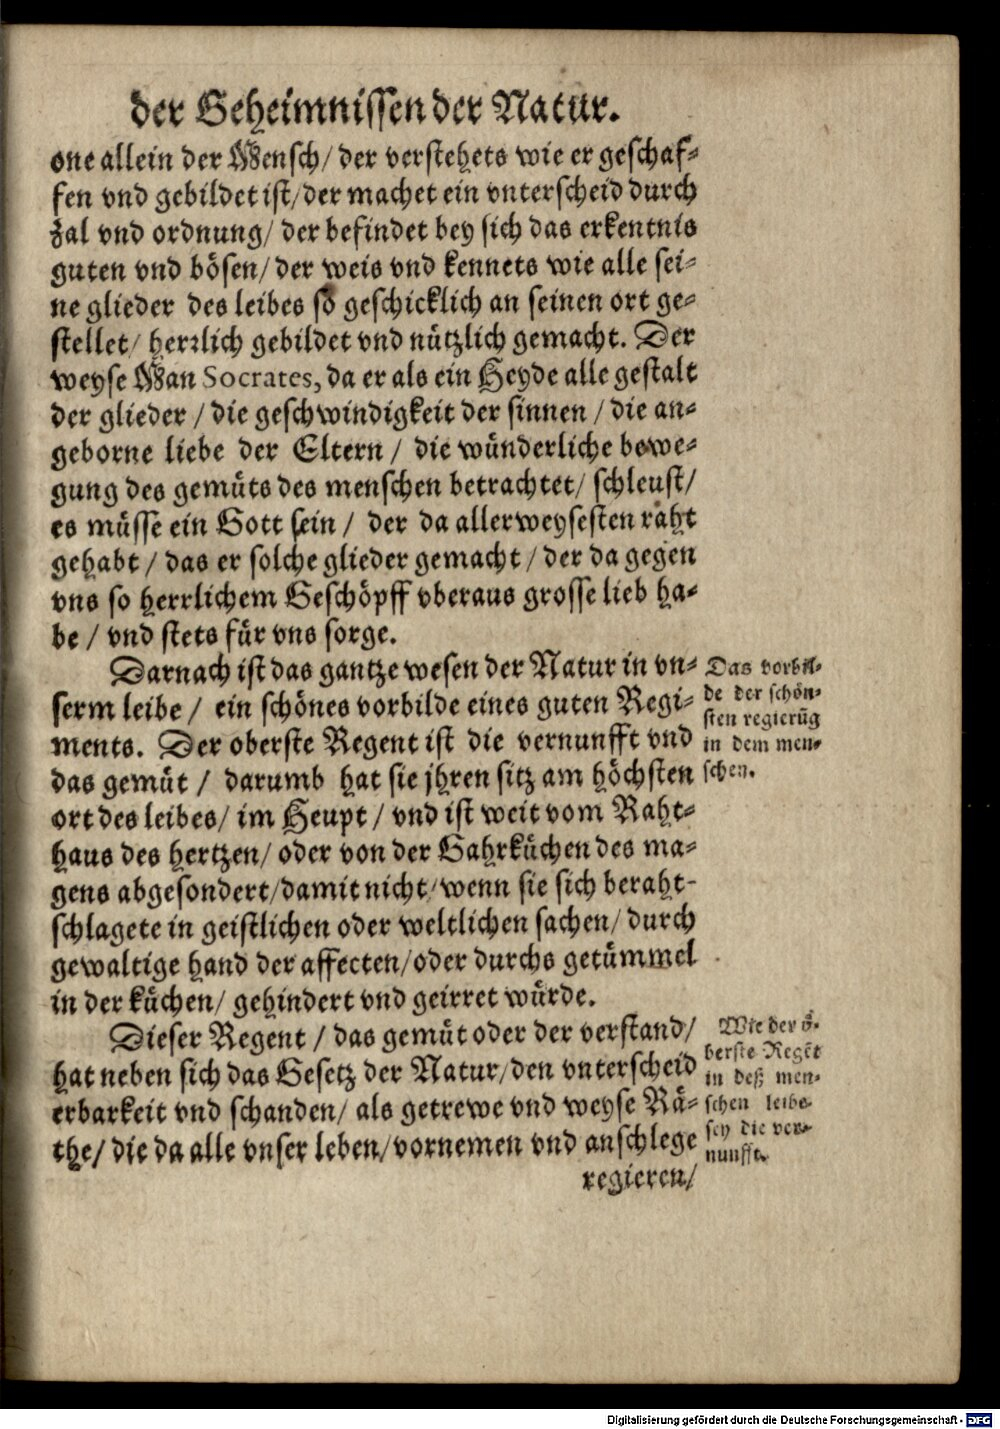 der Geheimnissen der Natur.
one allein der Mensch/ der verstehets wie er geschaf-
fen vnd gebildet ist/ der machet ein vnterscheid durch
zal vnd ordnung/ der befindet bey sich das erkentnis
guten vnd bösen/ der weis vnd kennets wie alle sei-
ne glieder des leibes so geschicklich an seinen ort ge-
stellet/ herrlich gebildet vnd nützlich gemacht. Der
weyse Man Socrates, da er als ein Heyde alle gestalt
der glieder / die geschwindigkeit der sinnen / die an-
geborne liebe der Eltern / die wünderliche bewe-
gung des gemüts des menschen betrachtet/ schleust/
es müsse ein Gott sein / der da allerweysesten raht
gehabt / das er solche glieder gemacht / der da gegen
vns so herrlichem Geschöpff vberaus grosse lieb ha-
be / vnd stets für vns sorge.
Darnach ist das gantze wesen der Natur in vn-
serm leibe / ein schönes vorbilde eines guten Regi-
ments. Der oberste Regent ist die vernunfft vnd
das gemüt / darumb hat sie jhren sitz am höchsten
ort des leibes/ im Heupt / vnd ist weit vom Raht-
haus des hertzen/ oder von der Gahrküchen des ma-
gens abgesondert/ damit nicht/ wenn sie sich beraht-
schlagete in geistlichen oder weltlichen sachen/ durch
gewaltige hand der affecten/ oder durchs getümmel
in der küchen/ gehindert vnd geirret würde.
Das vorbil-
de der schön-
sten regierūg
in dem men-
schen.
Dieser Regent / das gemüt oder der verstand/
hat neben sich das Gesetz der Natur/ den vnterscheid
erbarkeit vnd schanden/ als getrewe vnd weyse Rä-
the/ die da alle vnser leben/ vornemen vnd anschlege
regieren/
Wie der ö-
berste Regēt
in deß men-
schen leibe
sey die ver-
nunfft.
Digitalisierung gefördert durch die Deutsche Forschungsgemeinschaft - DFG